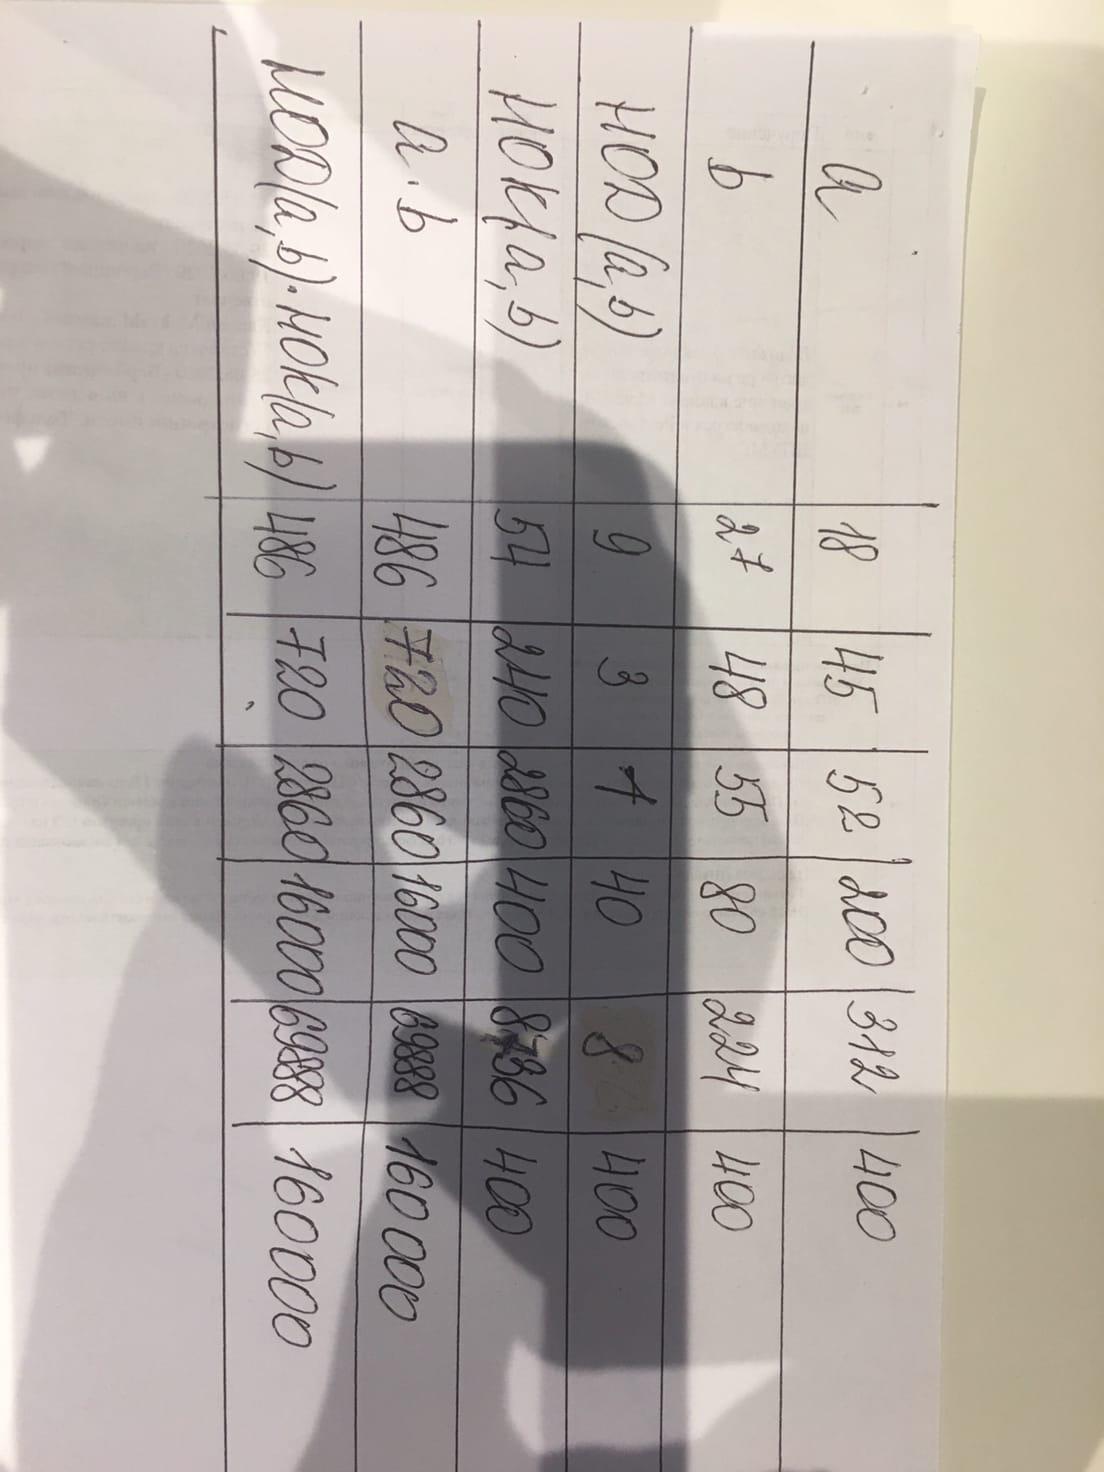 a 18 45 52 200 312 400
b 27 48 55 80 224 400
НОД (a, b) 9 3 1 40 8 400
НОК(a, b) 54 240 2860 400 8736 400
a · b 486 720 2860 16000 69888 160 000
НОД(a, b) · НОК(a, b) 486 720 2860 16000 69888 160000